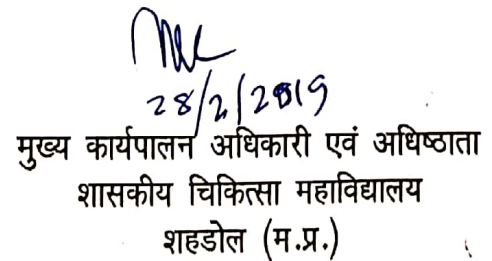 28/2/2019
मुख्य कार्यपालन अधिकारी एवं अधिष्ठाता
शासकीय चिकित्सा महाविद्यालय
शहडोल (म.प्र.)